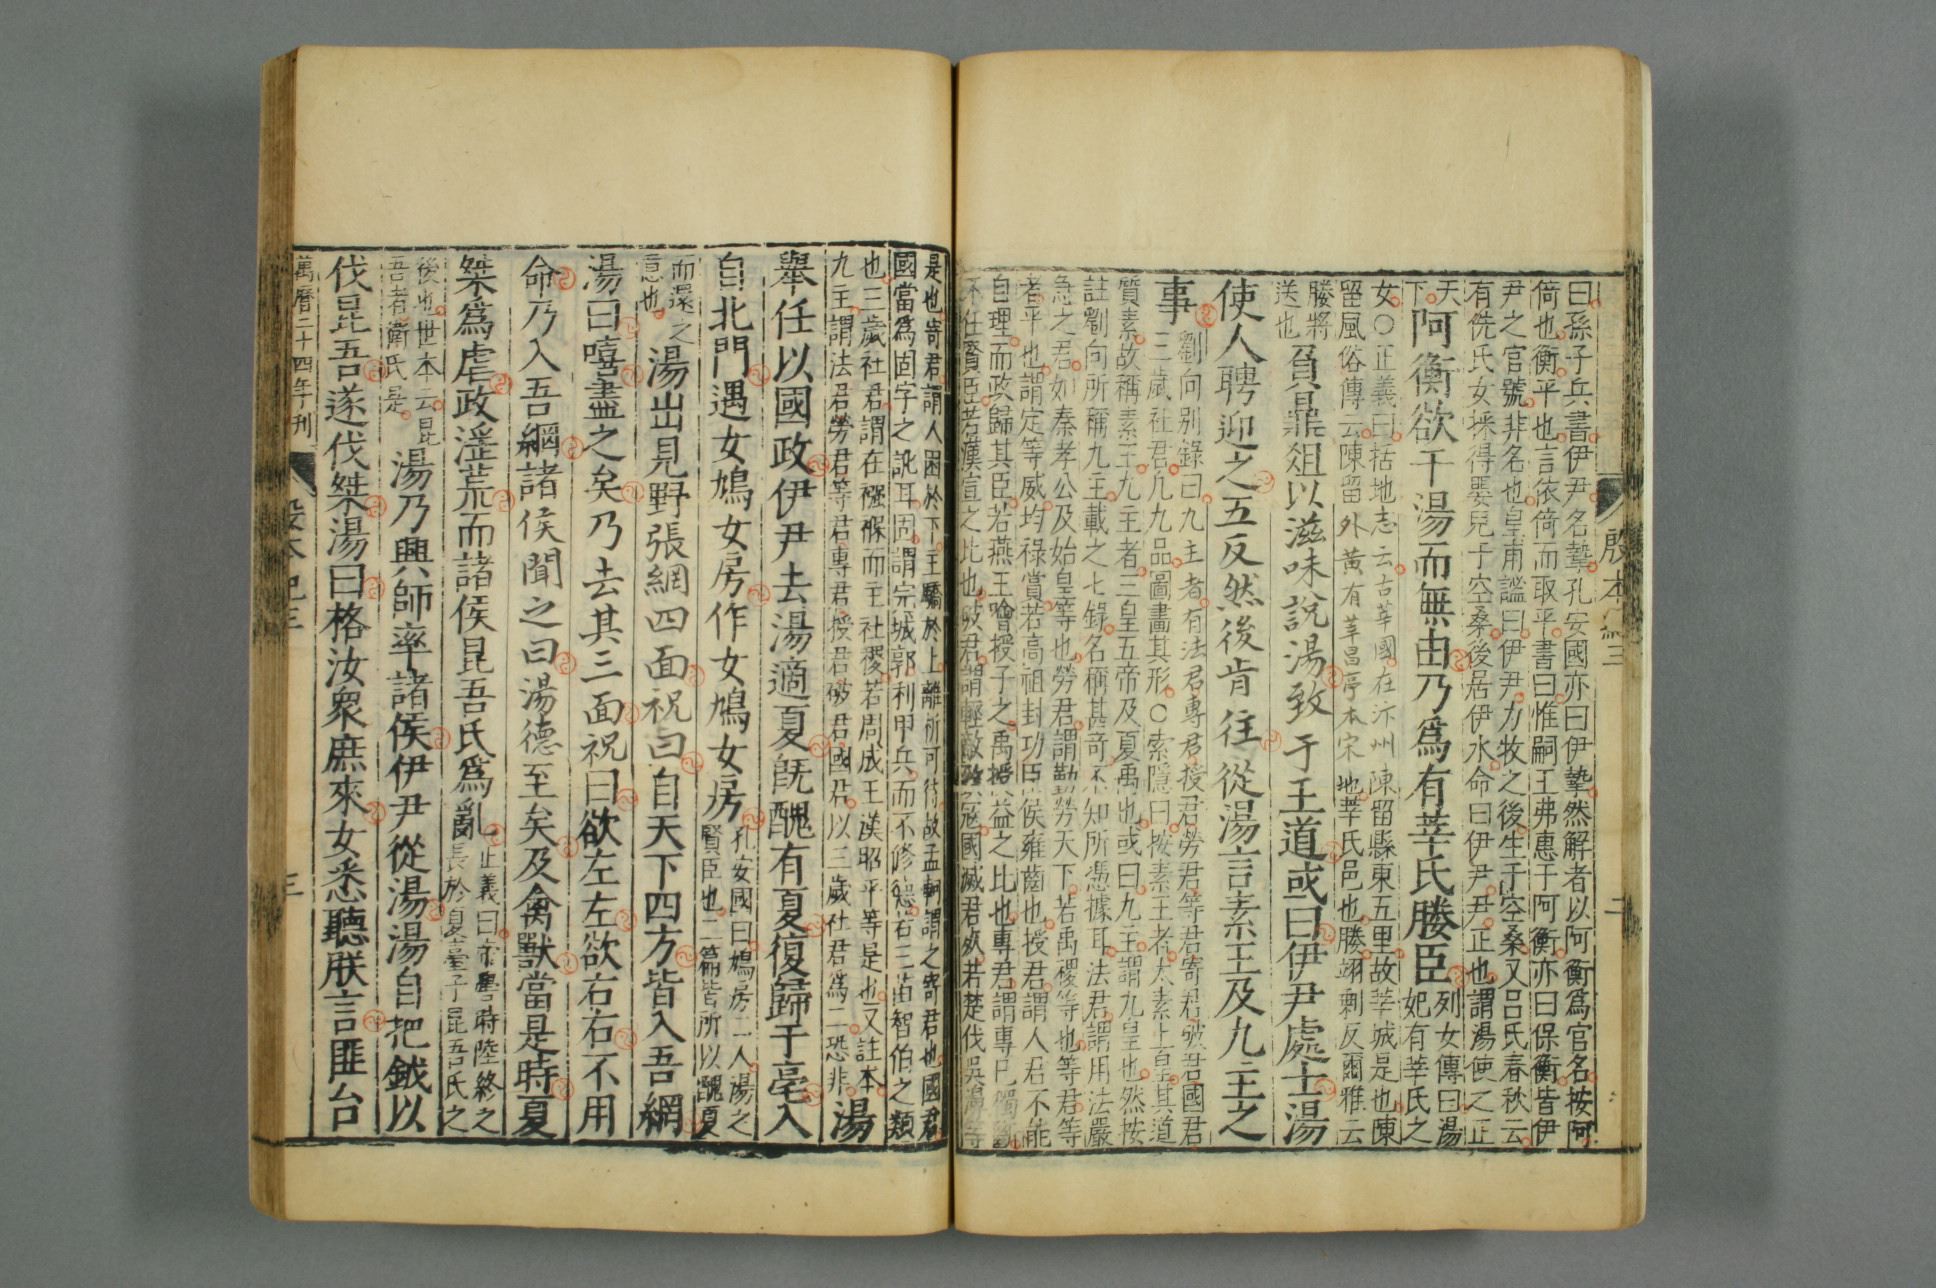 殷本紀三 二
曰孫子兵書伊尹名摯孔安國亦曰伊摯然解者以阿衡爲官名按阿
倚也衡平也言依倚而取平書曰惟嗣王弗惠于阿衡亦曰保衡皆伊
尹之官號非名也皇甫謐曰伊尹力牧之後生于空桑又吕氏春秋云
有侁氏女採得嬰兒于空桑後居伊水命曰伊尹尹正也謂湯使之正
天下阿衡欲干湯而無由乃爲有莘氏媵臣列女傳曰湯妃有莘氏之
女○正義曰括地志云古莘國在汴州陳留縣東五里故莘城是也陳
留風俗傳云陳留外黄有莘昌亭本宋地莘氏邑也媵翊剩反爾雅云
媵將送也負鼎俎以滋味說湯致于王道或曰伊尹處士湯
使人聘迎之五反然後肯往從湯言素王及九主之
事劉向别錄曰九主者有法君專君授君勞君等君寄君破君國君
三歲社君凡九品圖畫其形○索隱曰按素王者太素上皇其道
質素故稱素王九主者三皇五帝及夏禹也或曰九主謂九皇也然按
註劉向所稱九主載之七錄名稱甚竒不知所憑據耳法君謂用法嚴
急之君如秦孝公及始皇等也勞君謂勤勞天下若禹稷等也等君等
者平也謂定等威均祿賞若高祖封功臣侯雍齒也授君謂人君不能
自理而政歸其臣若燕王噲授子之禹授益之比也專君謂專已獨斷
不任賢臣若漢宣之比也破君謂輕敵致寇國滅君死若楚伐吳濞等
是也寄君謂人困於下主驕於上離析可待故孟軻謂之寄君也國君
國當爲固字之訛耳固謂完城郭利甲兵而不修德若三苗智伯之類
也三歲社君謂在襁褓而主社稷若周成王漢昭平等是也又註本
九主謂法君勞君等君專君授君破君國君以三歲社君爲二恐非湯
舉任以國政伊尹去湯適夏旣醜有夏復歸于亳入
自北門遇女鳩女房作女鳩女房孔安國曰鳩房二人湯之賢臣也二篇皆所以醜夏
而還之意也湯出見野張網四面祝曰自天下四方皆入吾網
湯曰嘻盡之矣乃去其三面祝曰欲左左欲右右不用
命乃入吾網諸侯聞之曰湯德至矣及禽獸當是時夏
桀爲虐政淫荒而諸侯昆吾氏爲亂正義曰帝嚳時陸終之長於夏臺子昆吾氏之
後也世本云昆吾者衛氏是湯乃興師率諸侯伊尹從湯湯自把鉞以
伐昆吾遂伐桀湯曰格汝衆庶來女悉聽朕言匪台
萬曆二十四年刊 殷本紀三 三